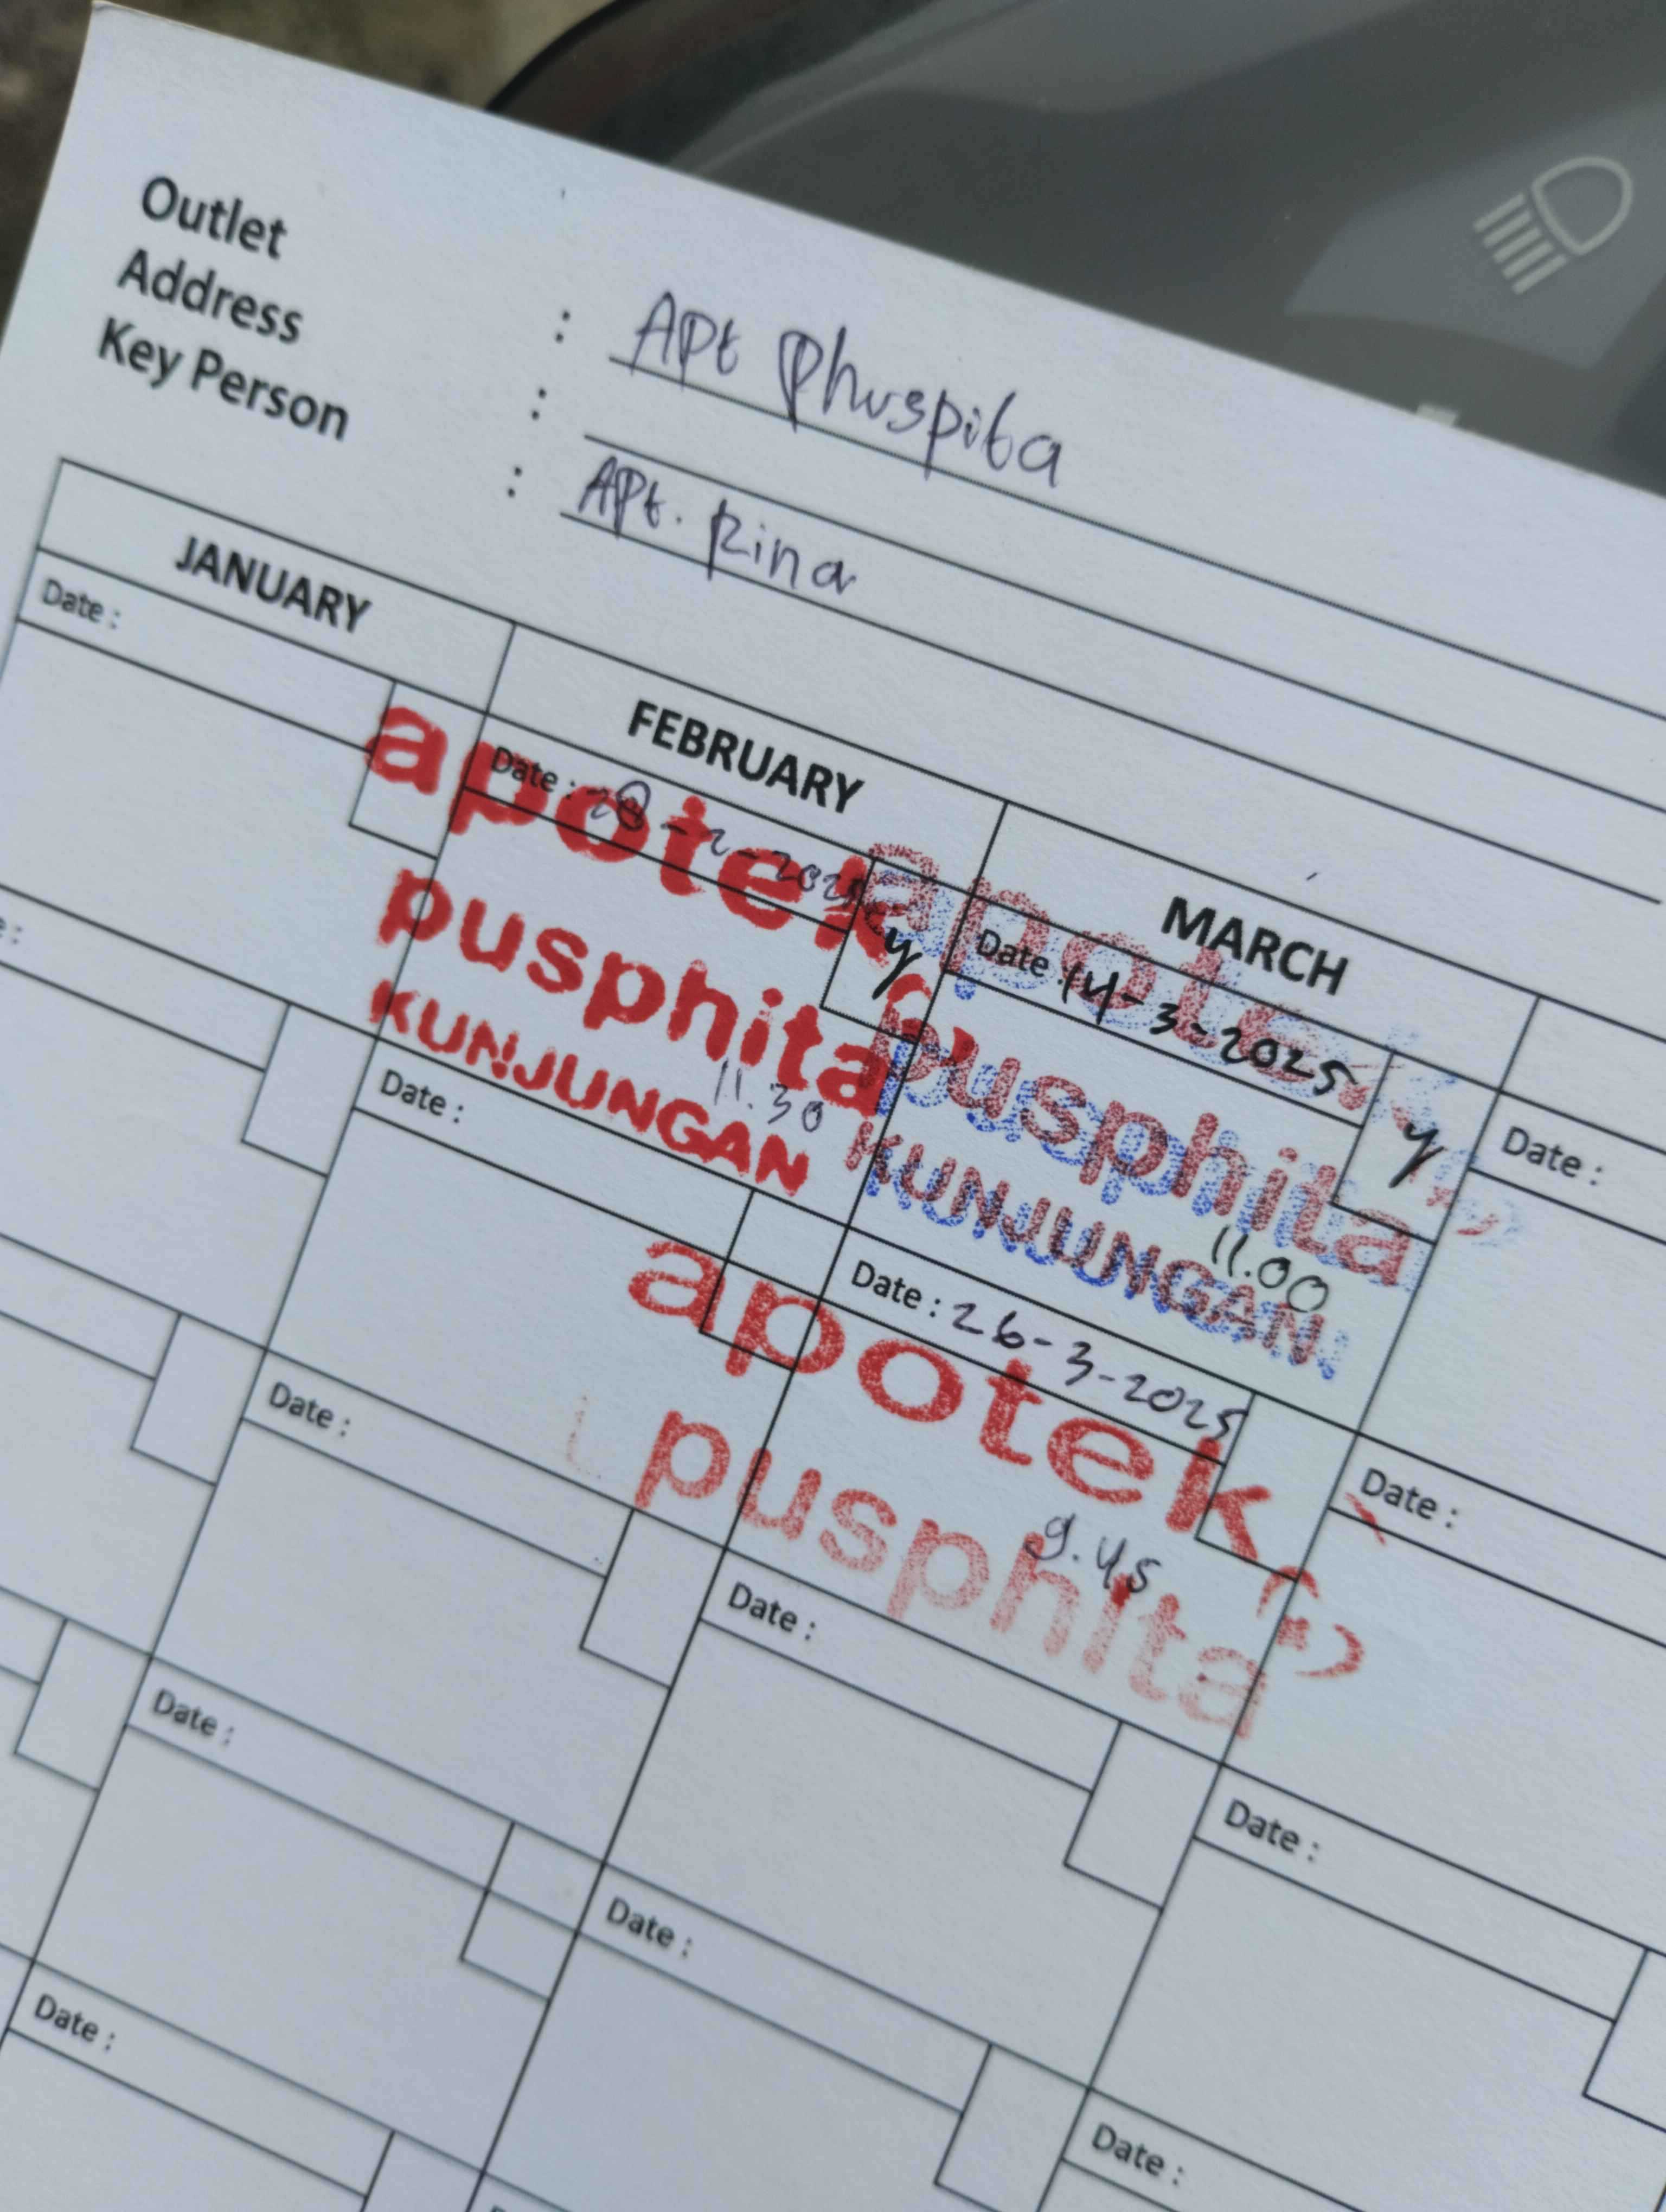 Outlet : Apt Phuspita
Address :
Key Person : Apt. Rina
JANUARY
FEBRUARY
MARCH
Date :
Date : 28-2-2025
Date 14-3-2025
Date :
apotek
pusphita
KUNJUNGAN
11.30
y
apotek
pusphita
KUNJUNGAN
11.00
y
Date :
Date : 26-3-2025
Date :
apotek
pusphita
9.45
Date :
Date :
Date :
Date :
Date :
Date :
Date :